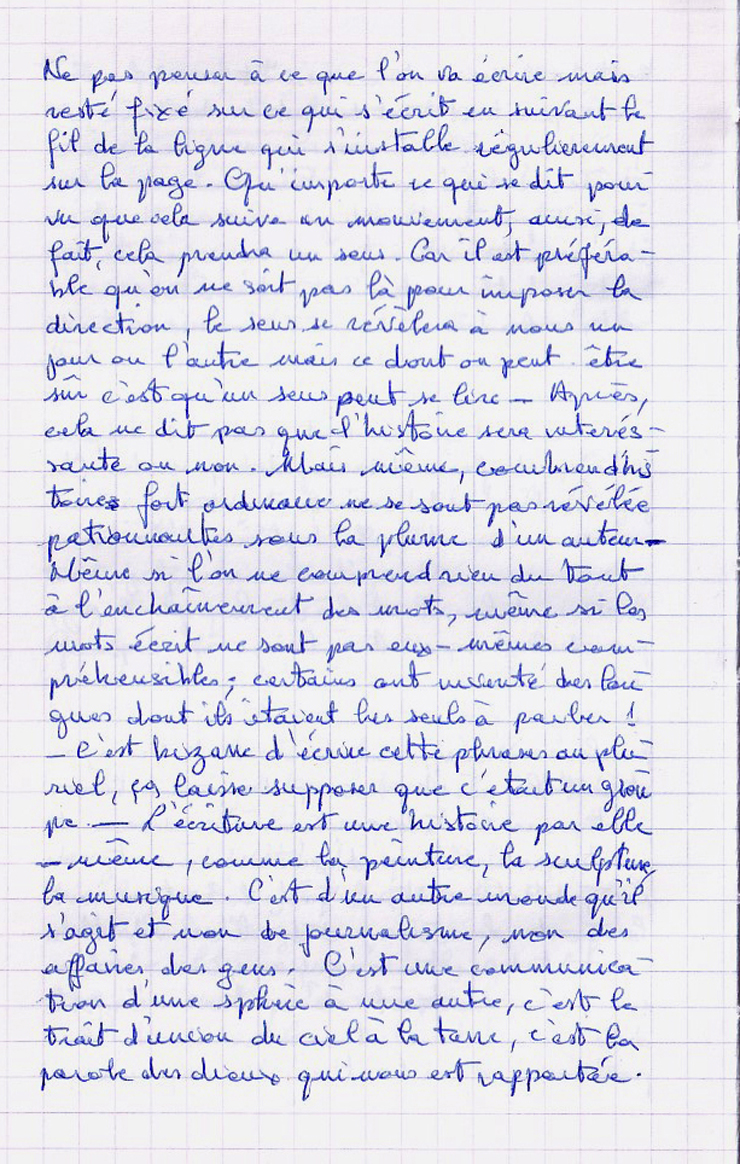 Ne pas penser à ce que l'on va écrire mais
resté fixé sur ce qui s'écrit en suivant le
fil de la ligne qui s'installe régulierement
sur la page. Qu'importe ce qui se dit pour
vu que cela suive un mouvement, ainsi, de
fait, cela prendra un sens. Car il est préféra-
ble qu'on ne soit pas là pour imposer la
direction, le sens se révèlera à nous un
jour ou l'autre mais ce dont on peut être
sûr c'est qu'un sens peut se lire – Après,
cela ne dit pas que l'histoire sera intérés-
sante ou non. Mais même, combien d'his
toires fort ordinaire ne se sont pas révélée
passionnantes sous la plume d'un auteur –
Même si l'on ne comprend rien du tout
à l'enchaînement des mots, même si les
mots écrit ne sont pas eux-mêmes com-
préhensibles ; certains ont inventé des lan
gues dont ils étaient les seuls à parler !
– C'est bizarre d'écrire cette phrases au plu-
riel, ça laisse supposer que c'était un grou
pe. — L'écriture est une histoire par elle
– même, comme la peinture, la sculpture,
la musique. C'est d'un autre monde qu'il
s'agit et non de journalisme, non des
affaires des gens. C'est une communica-
tion d'une sphère à une autre, c'est le
trait d'union du ciel à la terre, c'est la
parole des dieux qui nous est rapportée.